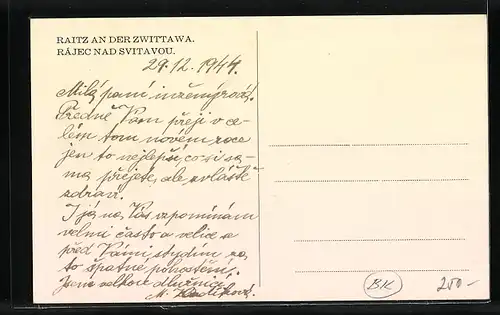 RAITZ AN DER ZWITTAWA.
RÁJEC NAD SVITAVOU.
29.12. 1944.
Milá paní inženýrová!
Předně Vám přeji v ce-
lém tom novém roce
jen to nejlepší, co si sa-
ma přejete, ale zvláště
zdraví.
I já na Vás vzpomínám
velmi často a velice se
před Vámi stydím za
to špatné pohoštění.
Jsem velkou dlužnicí
M.
BK
200-